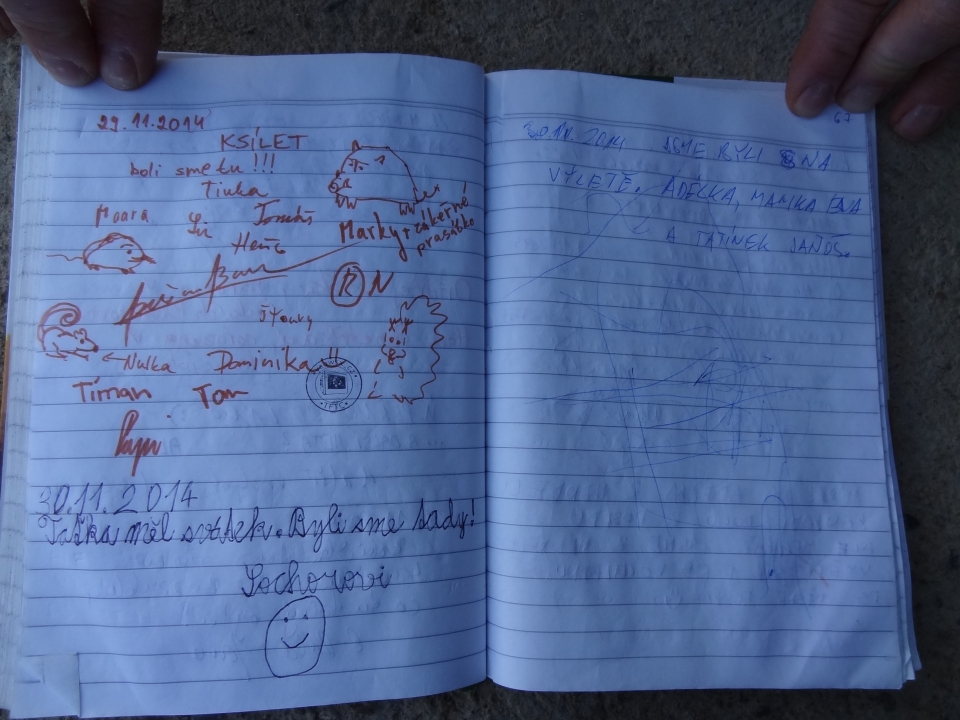 29.11.2014
KSÍLET
boli sme tu !!!
Tinka
Moara
Tomáš
Marky + zákeřné
prasátko
® N
← Nulka
Dominika
Timan
Tom
30.11.2014
Taťka měl svátek. Byli sme tady!
Sochorovi
67
30.11. 2014 JSME BYLI NA
VÝLETĚ. ADÉLKA, MAMKA EVA
A TATÍNEK JANOŠ.